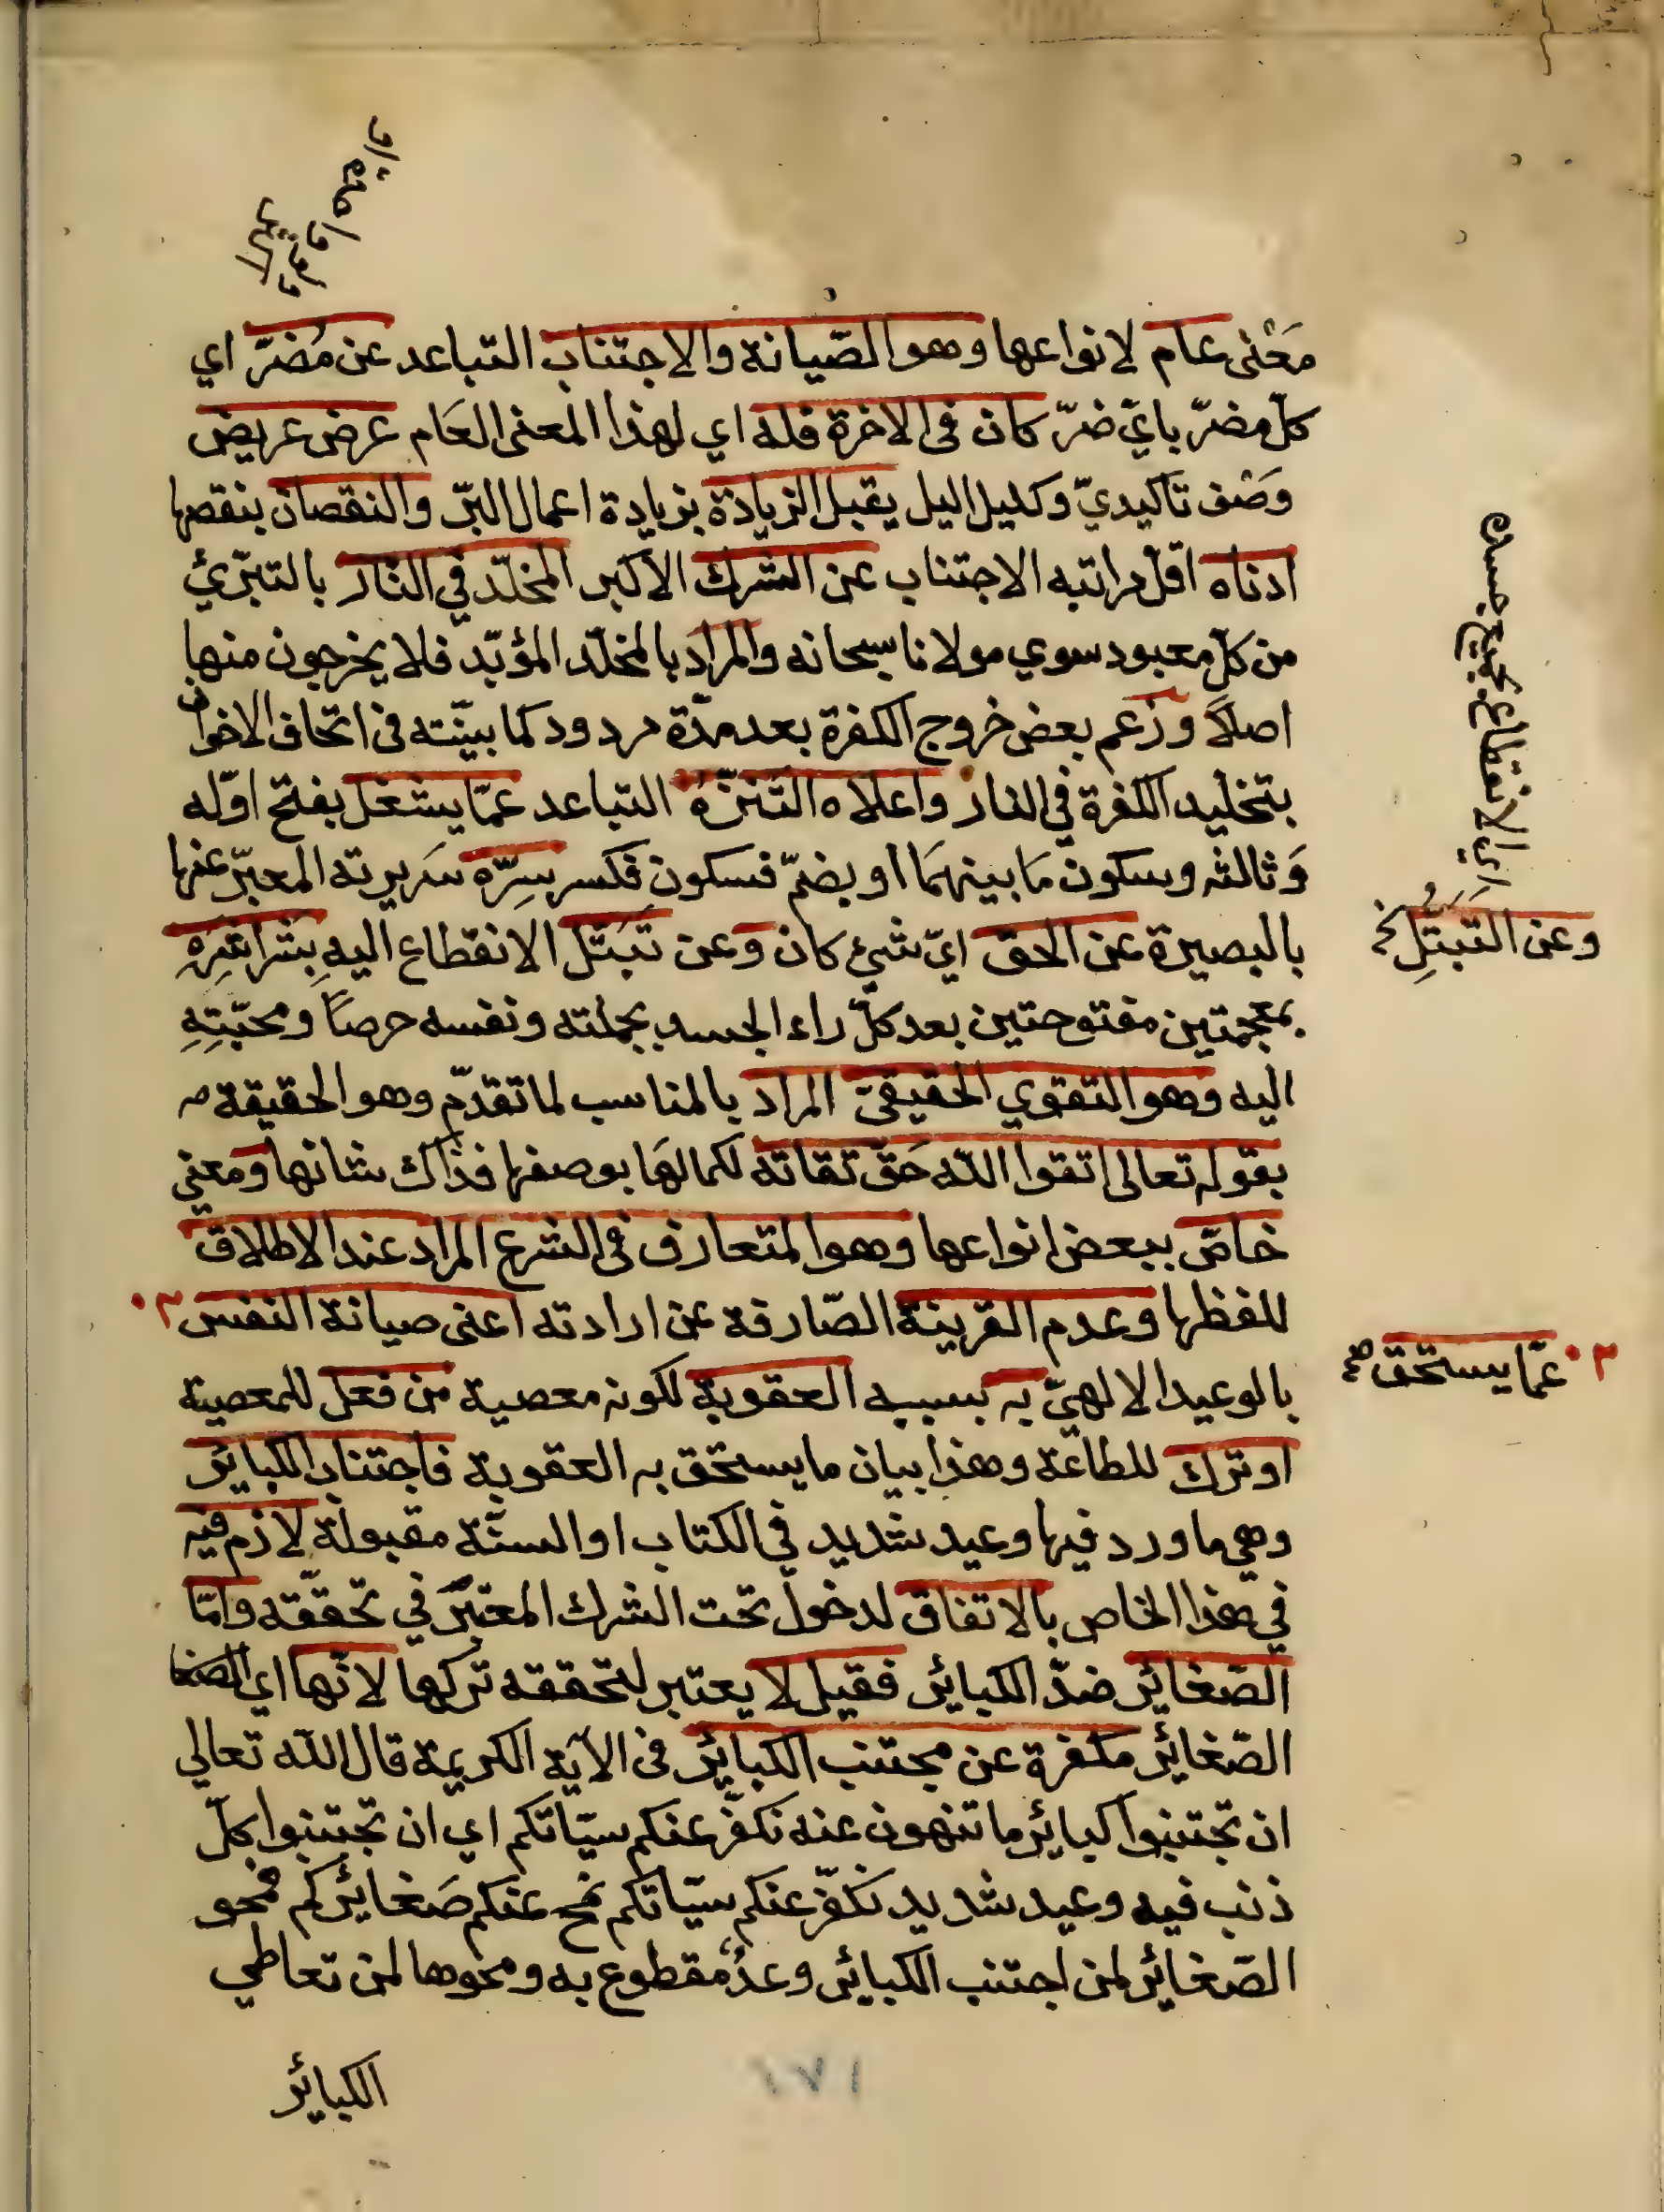 مَعْنى عام لانواعها وهو الصّيانة والاجتناب التباعد عن مُضرّ اي
كلّ مضرّ بايّ ضرّ كان فى الاخرة فله اي لهذا المعنى العَام عرض عريض
وَصْف تاكيديّ وكليل اليل يقبل الزيادة بزيادة اعمال البرّ والنقصان بنقصها
ادناه اقل مراتبه الاجتناب عن الشرك الاكبر المخلّد في النار بالتبرّئ
من كلّ معبود سوي مولانا سبحانه والمراد بالمخلّد المؤبّد فلا يخرجون منها
اصلاً وزعم بعض خروج الكفرة بعد مدّة مردود كما بيّنته فى اتحاف الاخوان
بتخليد الكفرة في النار واعلاه التنزّه التباعد عمّا يشغل بفتح اوّله
وَثالثه وسكون مَا بينهمَا او بضمّ فسكون فكسر سِرّه سَريرته المعبّر عنها
بالبصيرة عن الحق ايّ شيئ كان وعن تَبتّل الانقطاع اليه بِشَراشِرِهِ
بمعجمتين مفتوحتين بعد كلّ راء الجسد بجملته ونفسه حرصاً ومحبّتِهِ
اليه وهو التقوي الحقيقىّ المراد بالمناسب لما تقدّم وهو الحقيقة
بقوله تعالى اتقوا الله حَقّ تقاته لكمالهَا بوصفها فذاك شانها ومعني
خاصّ ببعض انواعها وهو المتعارف فى الشرع المراد عند الاطلاق
للفظها وعدم القرينة الصّارفة عن ارادته اعنى صيانة النفس ٢
بالوعيد الالهيّ به بسببه العقوبة لكونه معصية من فعل للمعصية
او ترك للطاعة وهذا بيان ما يستحق به العقوبة فاجتناب الكبائر
وهي ما ورد فيها وعيد شديد في الكتاب او السنّة مقبولة لازم فيه
في هذا الخاص بالاتفاق لدخول تحت الشرك المعتبر في تحقّقه وامّا
الصّغائر ضدّ الكبائر فقيل لا يعتبر لتحققه تركها لانّها اي الصغا
الصّغائر مكفرة عن مجتنب الكبائر فى الآية الكريمة قال الله تعالي
ان تجتنبوا كبائر ما تنهون عنه نكفّر عنكم سيّاتكم اي ان تجتنبوا كلّ
ذنب فيه وعيد شديد نكفّر عنكم سيّاتكم نمح عنكم صَغائركم فمحو
الصّغائر لمن اجتنب الكبائر وعدٌ مقطوع به ومحوها لمن تعاطي
الكبائر
١٧١
اي الانقطاع بجميع جسده
وعن التَبَتُّلِ خ
٢ عمّا يستحق صح